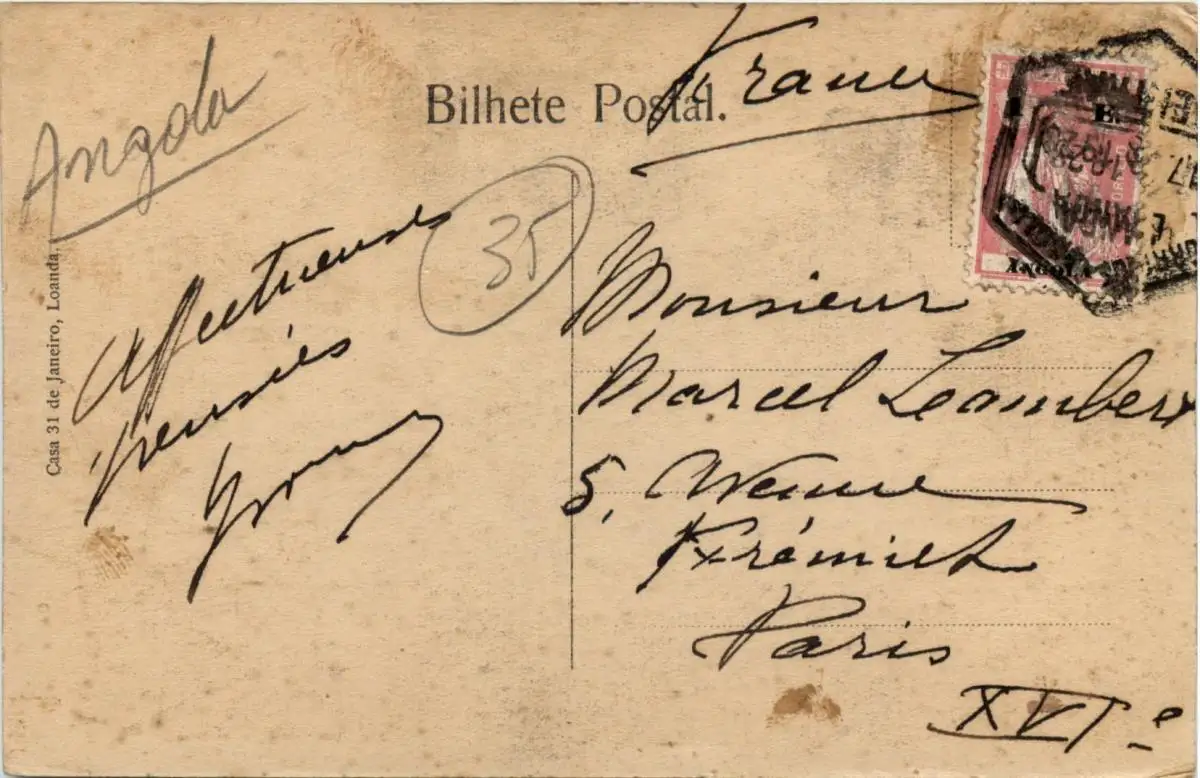 Bilhete Postal.
France
Angola
35
Affectueuses
pensées
Yvonne
Casa 31 de Janeiro, Loanda.
Monsieur
Marcel Lambert
5, Avenue
Frémiet
Paris
XVIe
ANGOLA